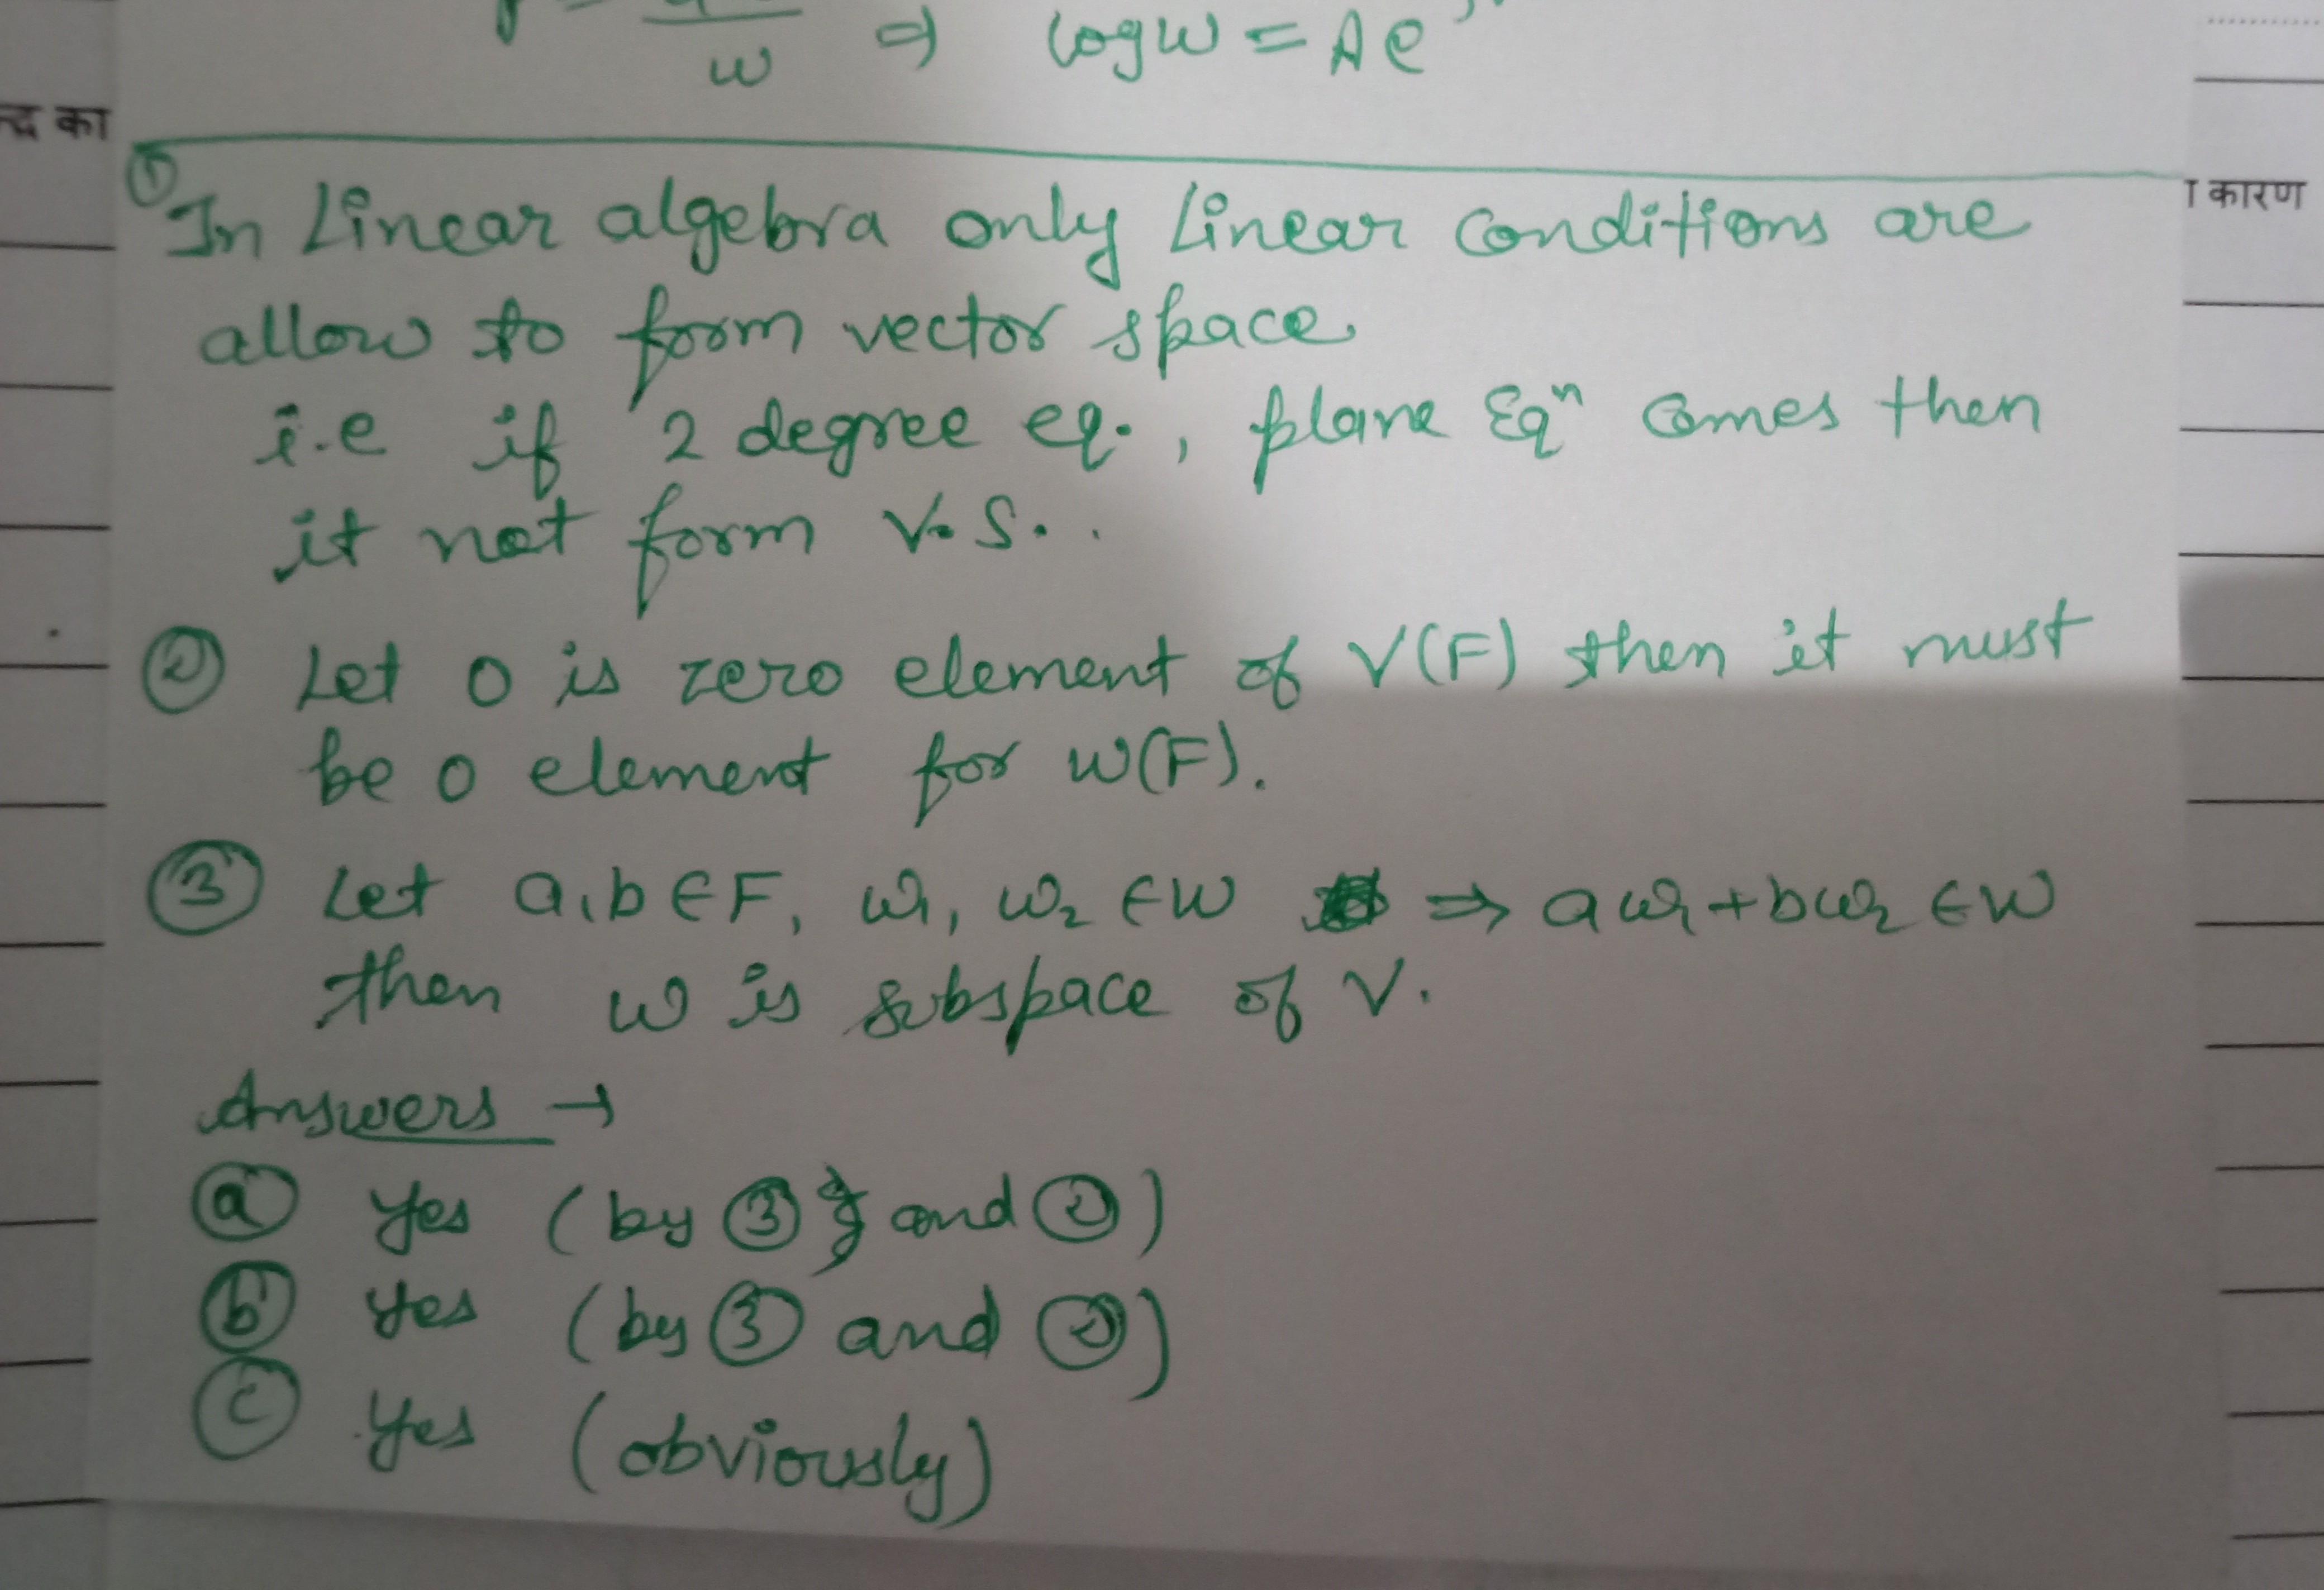 w ⇒ log w = A e
न्द का
ा कारण
① In Linear algebra only Linear conditions are
allow to form vector space
i.e if 2 degree eq. , plane Eqⁿ comes then
it not form V.S..
② Let 0 is zero element of V(F) then it must
be 0 element for W(F).
③ Let a,b ∈ F, w₁, w₂ ∈ W ⇒ aw₁+bw₂ ∈ W
then W is subspace of V.
Answers →
ⓐ yes (by ③ and ②)
ⓑ yes (by ③ and ②)
ⓒ yes (obviously)